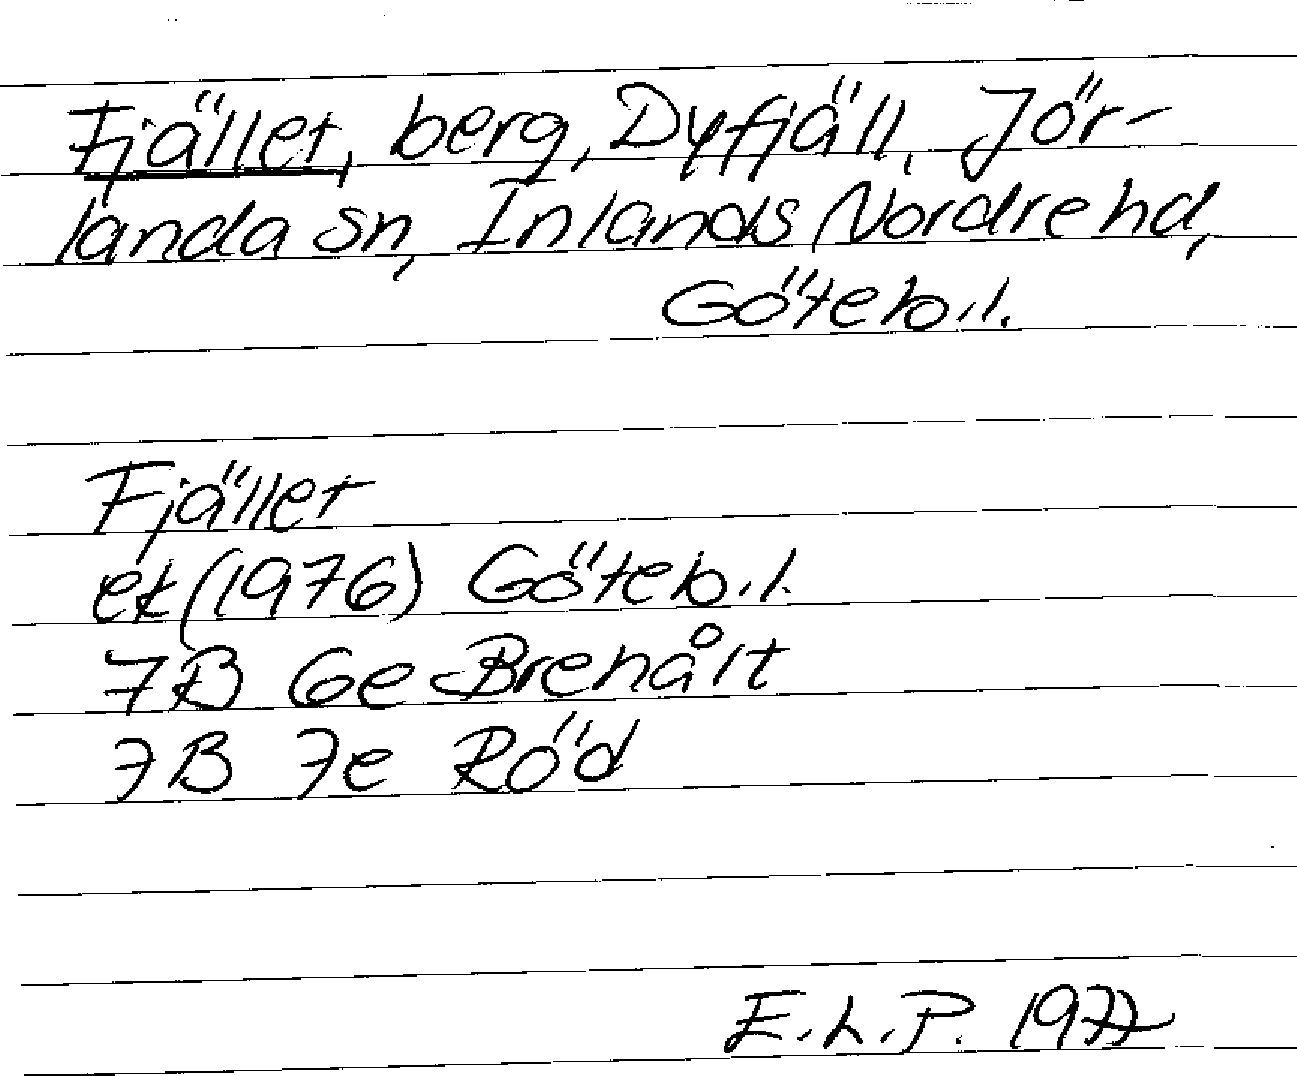 Fjället, berg, Dyfjäll, Jör-
landa sn, Inlands Nordre hd,
Göteb.l.
Fjället
ek (1976) Göteb.l.
7B 6e Brehålt
7B 7e Röd
E.L.P. 1977